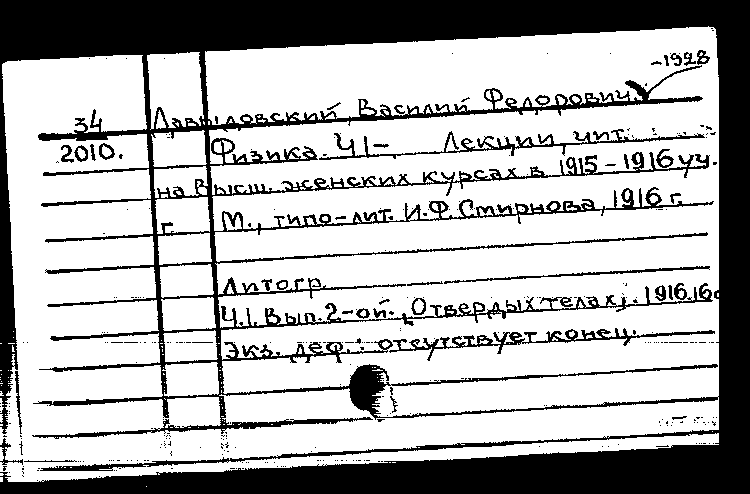 -1928
34 Давыдовский, Василий Федорович.
2010. Физика. Ч I-, Лекции, чит.
на Высш. женских курсах в 1915-1916 уч.
г. М., типо-лит. И.Ф. Смирнова, 1916 г.
Литогр.
Ч.I. Вып. 2-ой. [О твердых телах]. 1916. 16 с
Экз. деф.: отсутствует конец.